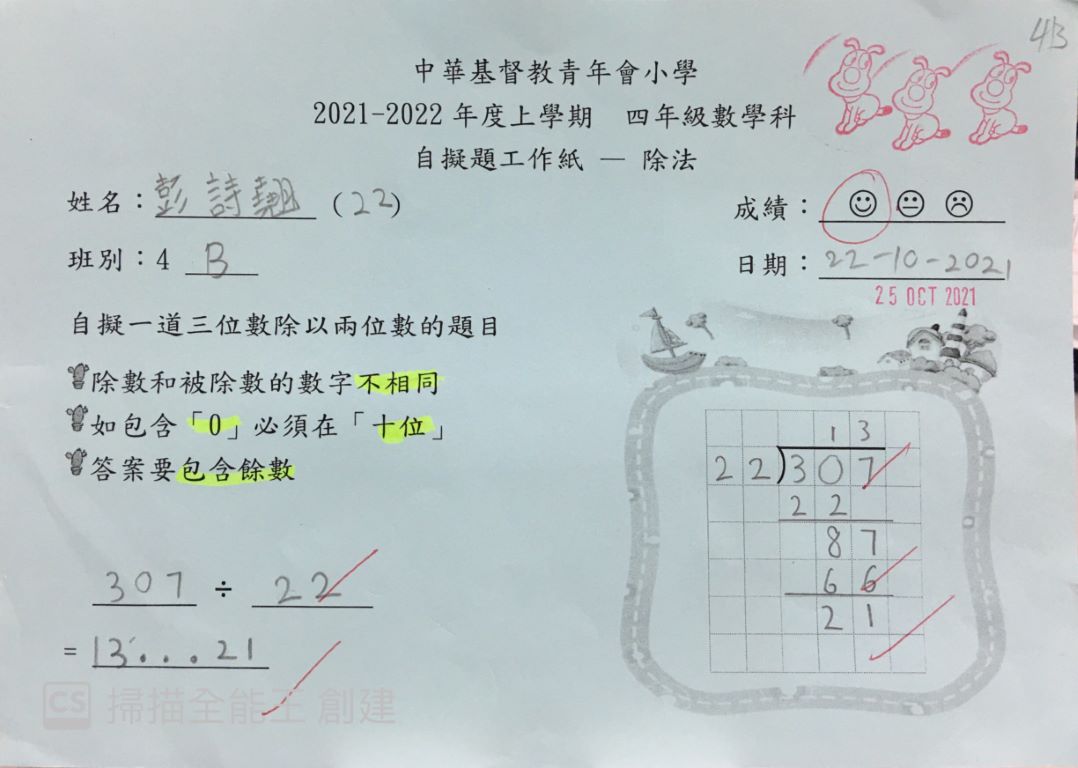 4B
中華基督教青年會小學
2021-2022 年度上學期　四年級數學科
自擬題工作紙 — 除法
姓名：彭詩翹 (22)
成績：
班別：4 B
日期：22-10-2021
25 OCT 2021
自擬一道三位數除以兩位數的題目
除數和被除數的數字不相同
如包含「0」必須在「十位」
答案要包含餘數
13
22)307
22
87
66
21
307 ÷ 22
= 13...21
CS 掃描全能王 創建